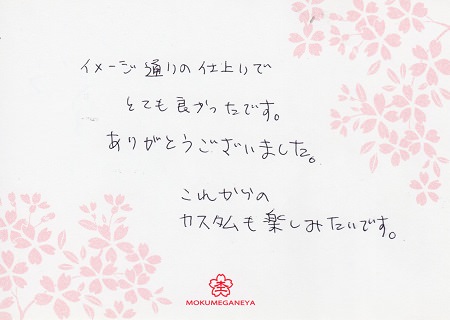 イメージ通りの仕上りで
とても良かったです。
ありがとうございました。
これからの
カスタムも楽しみたいです。
MOKUMEGANEYA